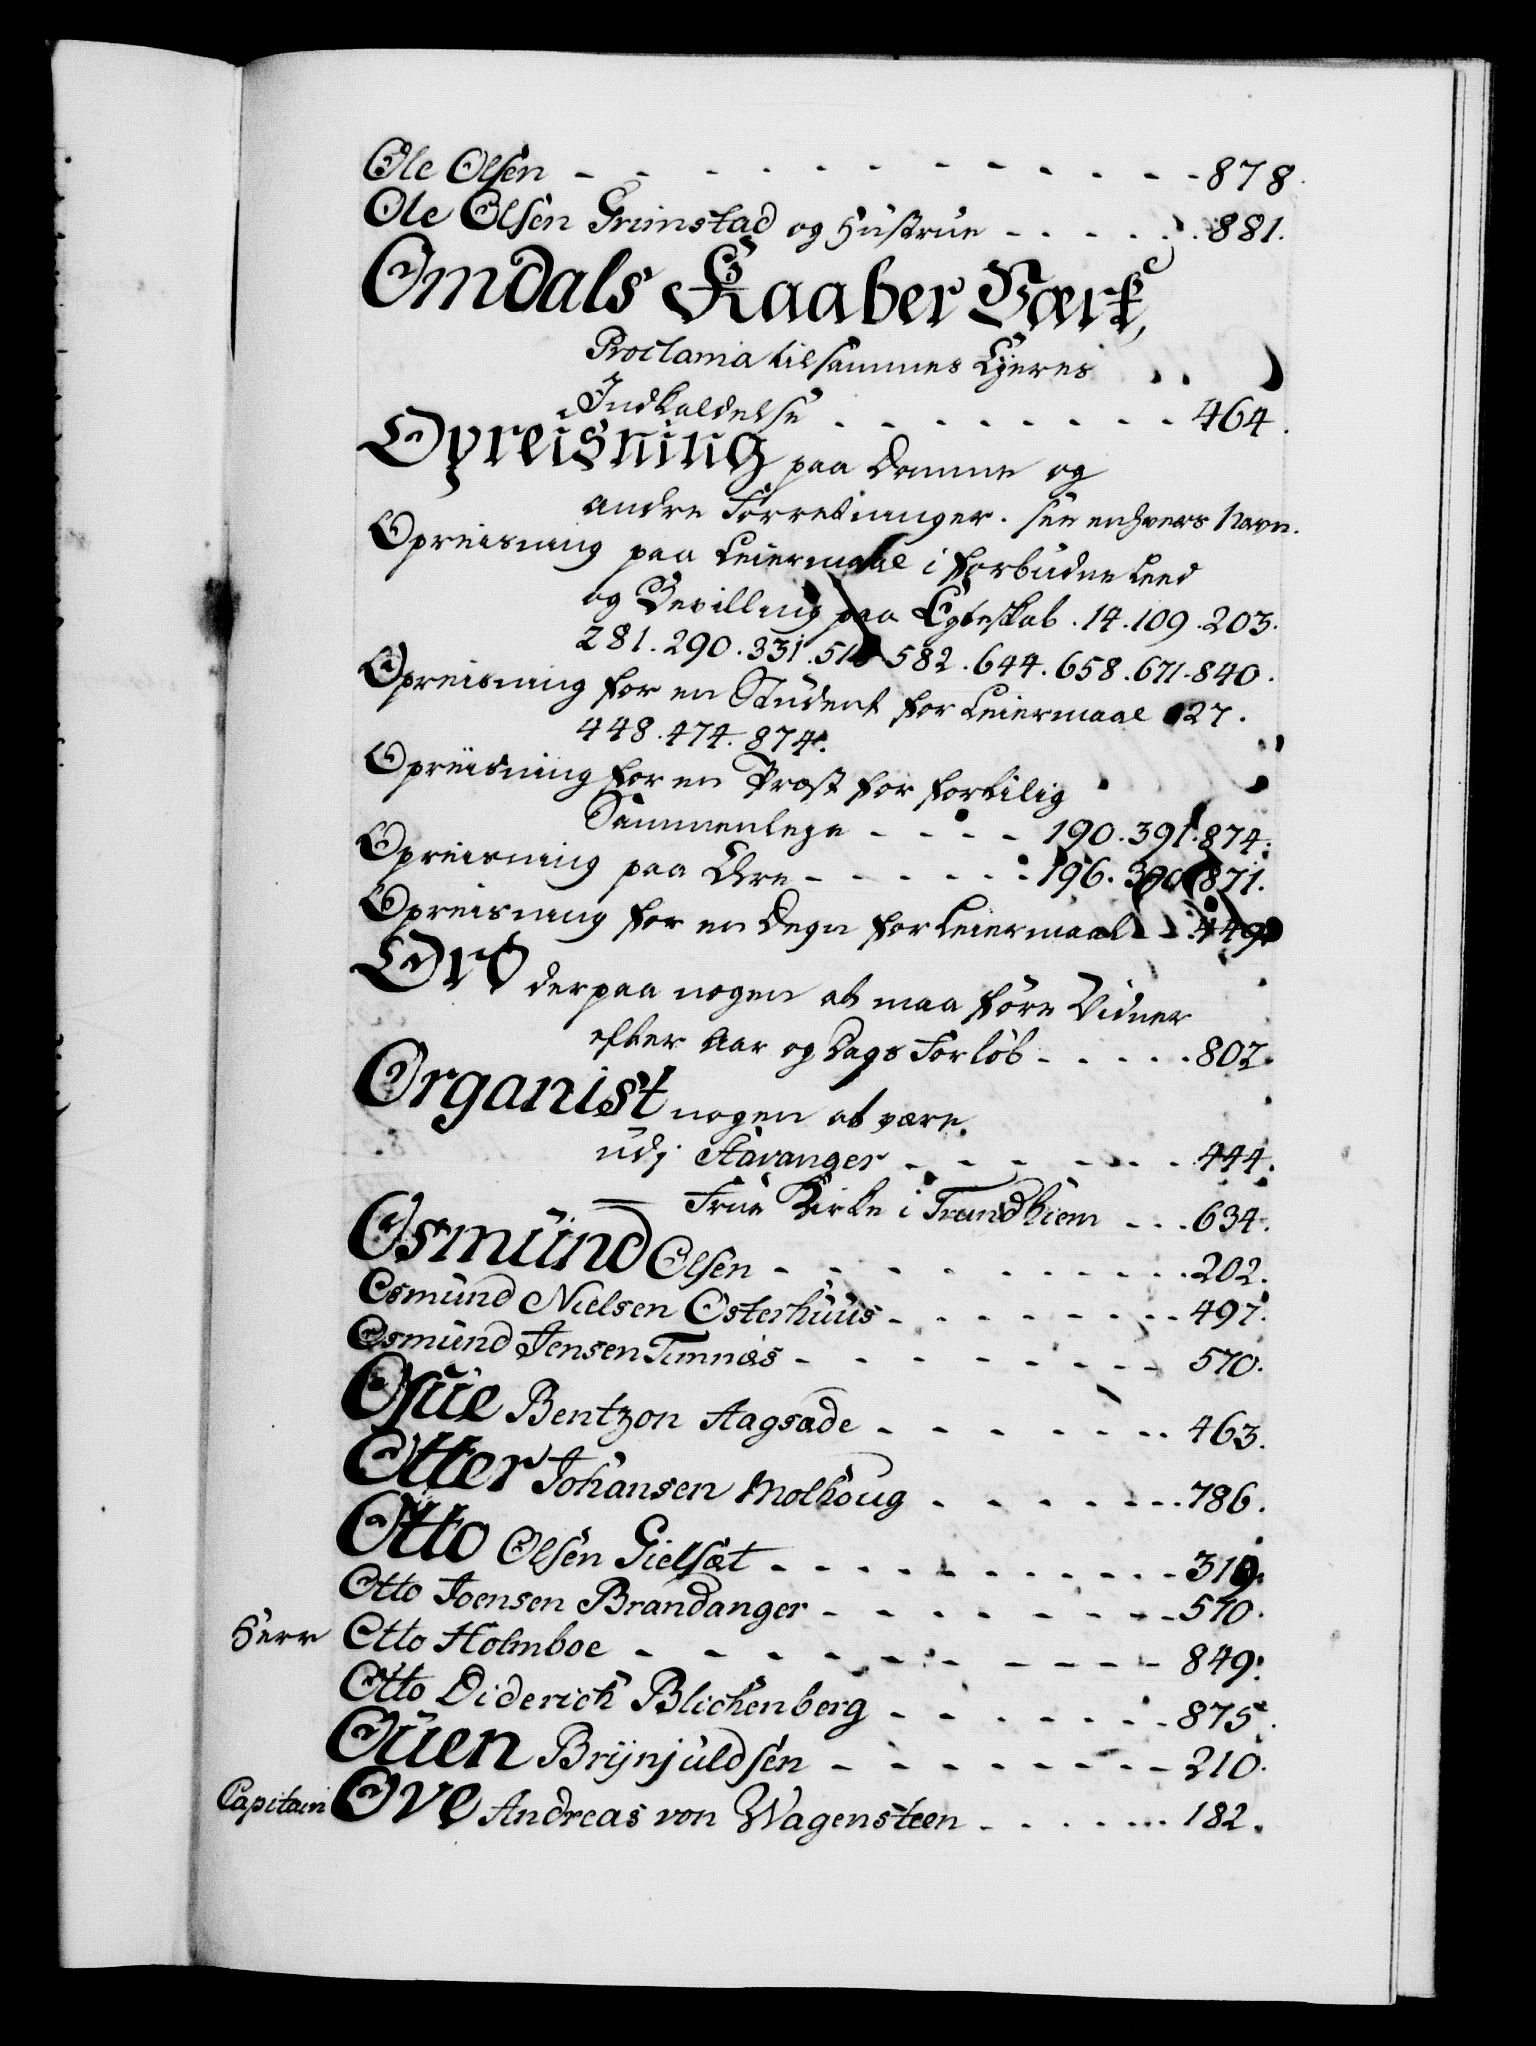 Ole Olsen - - - - - - - - - - - 878.
Ole Olsen Grimstad og Hustrue - - - - - 881.
Omdals Kaaber Værk,
Proclama til sammes Eyeres
Indkaldelse - - - - - - - - 464.
Opreisning paa Domme og
andre Forretninger. see enhvers Navn.
Opreisning paa Leiermaal i forbudne Leed
og Bevilling paa Egteskab. 14. 109. 203.
281. 290. 331. 582. 644. 658. 671. 840.
Opreisning for en Student for Leiermaal 27.
448. 474. 874.
Opreisning for en Præst for fortilig
Sammenleye - - - - 190. 391. 874.
Opreisning paa Ære - - - - - - 196. 390. 871.
Opreisning for en Degn for Leiermaal - - 449.
Ord derpaa nogen at maa føre Vidner
efter Aar og Dags Forløb - - - - - 802.
Organist nogen at være.
udj Stavanger - - - - - - 444.
= Frue Kirke i Trundhiem - - - 634.
Osmund Olsen - - - - - - - - - 202.
Osmund Nielsen Osterhuus - - - - - - - 497.
Osmund Jensen Timnæs - - - - - - - - 570.
Osue Bentzon Aagsæde - - - - - - - 463.
Otter Johansen Molhoug - - - - - - - 786.
Otto Olsen Gielsæt - - - - - - - - - 319.
Otto Joensen Brandanger - - - - - - - 570.
Herr Otto Holmboe - - - - - - - - - 849.
Otto Diderich Blichenberg - - - - - - - 875.
Ouen Brynjuldsen - - - - - - - - 210.
Capitain Ove Andreas von Wagensteen - - - - - - 182.